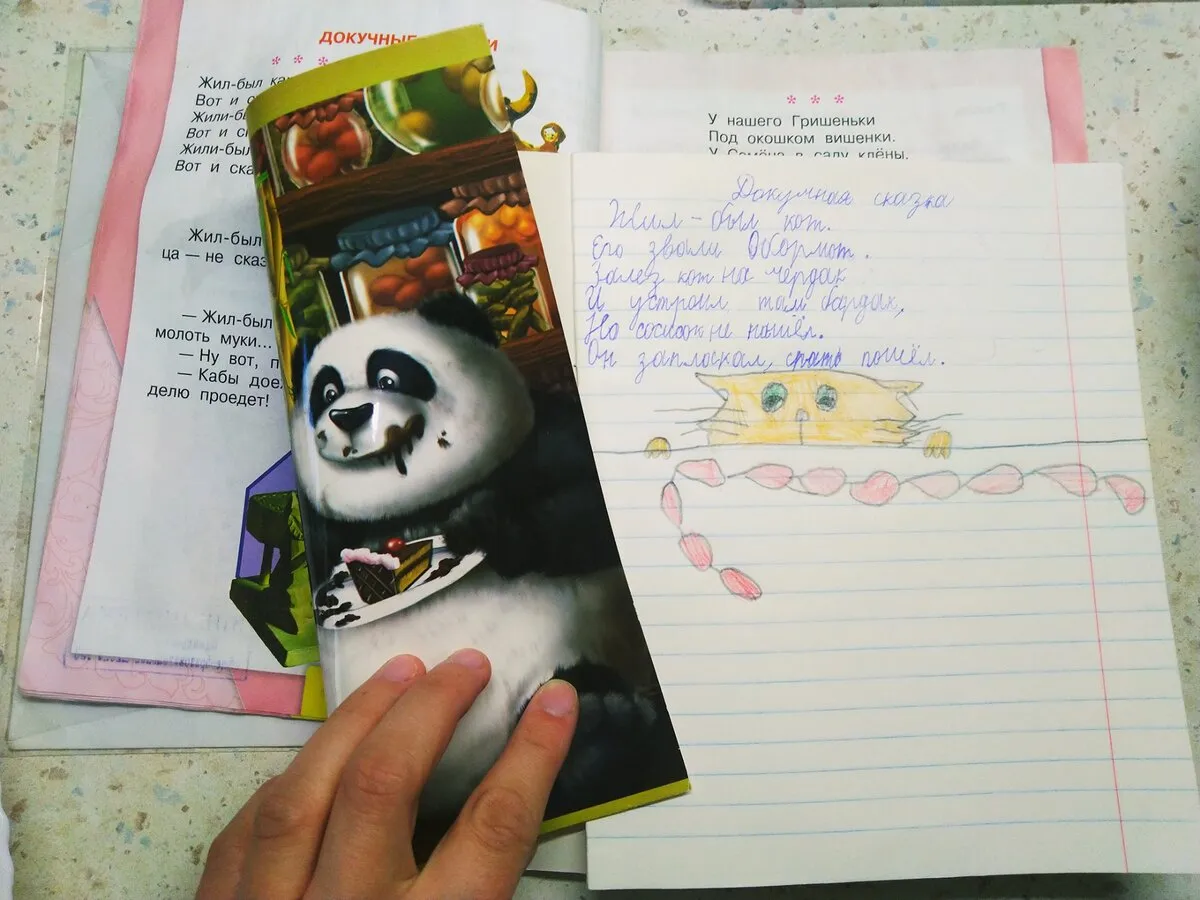 ДОКУЧНЫЕ
* * *
Жил-был
Вот и
Жили-бы
Вот и ск
Жили-был
Вот и ска
Жил-был
ца — не сказ
— Жил-был
молоть муки...
— Ну вот, п
— Кабы доех
делю проедет!
* * *
У нашего Гришеньки
Под окошком вишенки.
У Семёна в саду клёны,
Докучная сказка
Жил-был кот.
Его звали Обормот.
Залез кот на чердак
И устроил там бардак,
Но сосиски не нашёл.
Он заплакал, спать пошёл.